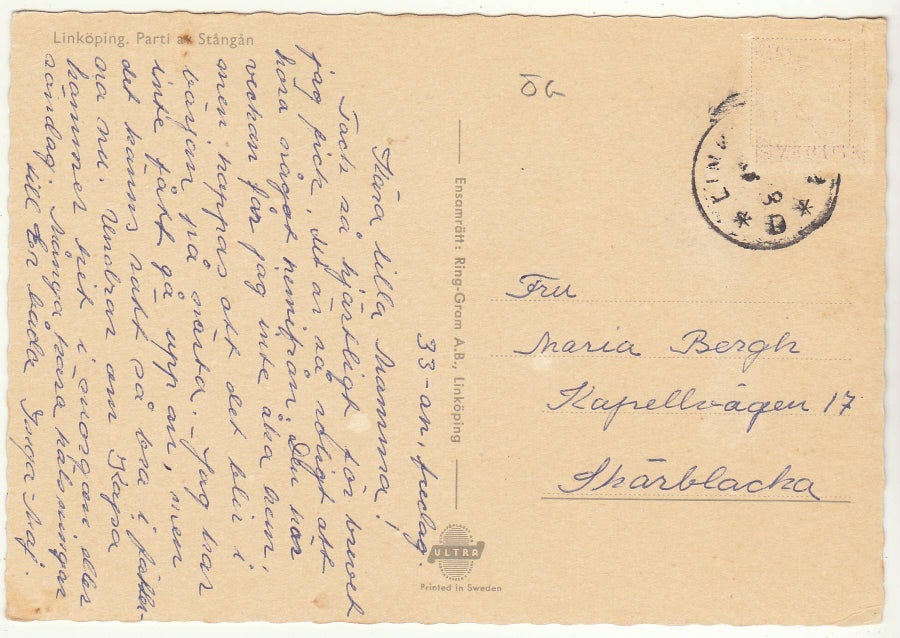 Linköping. Parti av Stångån
33-an, fredag.
Kära lilla Mamma!
Tack så hjärtligt för brevet
jag fick, det är så roligt att
höra något hemifrån. Den här
veckan får jag inte åka hem,
men hoppas att det blir i
början på nästa. – Jag har
inte fått gå upp än, men
det känns rätt så bra i fötter-
na nu. Undrar om Kajsa
kommer hit i morgon eller
söndag. Många kära hälsningar
till Er båda Inga-Maj.
Ensamrätt: Ring-Gram A.B., Linköping
ULTRA
Printed in Sweden
ÖG
SVERIGE
LINK
Fru
Maria Bergh
Kapellvägen 17
Skärblacka